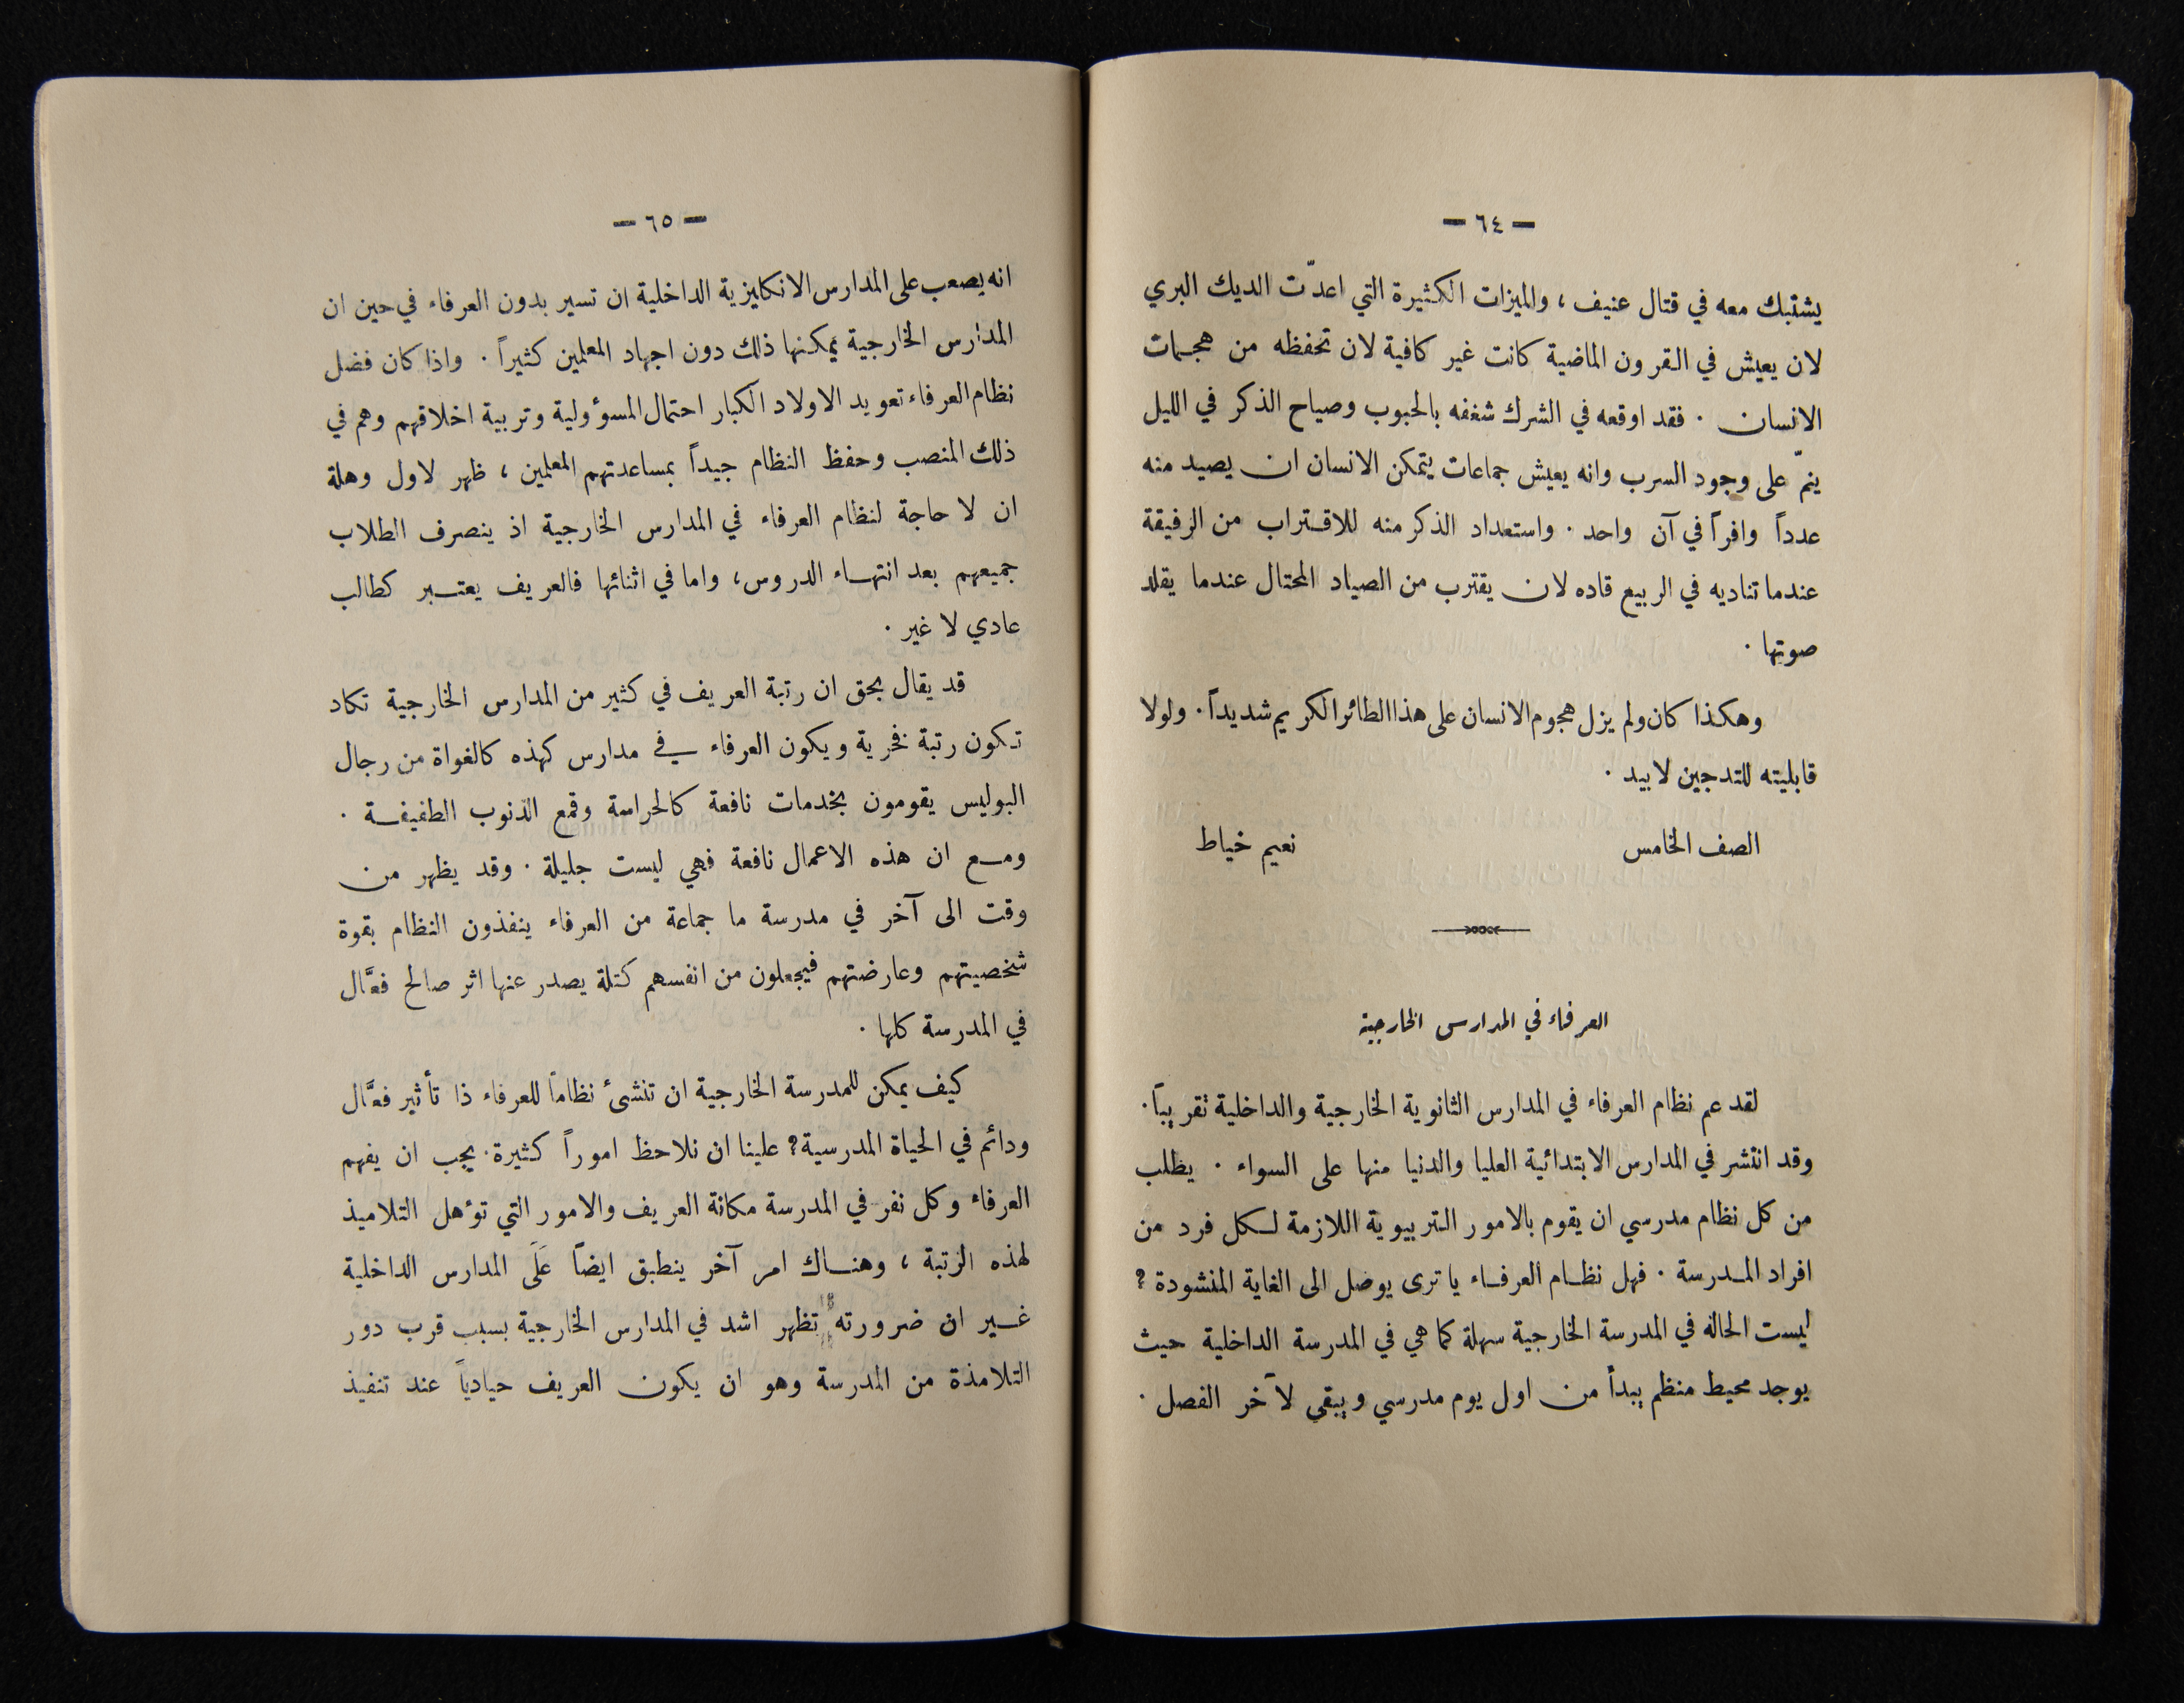 — ٦٤ —
يشتبك معه في قتال عنيف ، والميزات الكثيرة التي اعدّت الديك البري
لان يعيش في القرون الماضية كانت غير كافية لان تحفظه من هجمات
الانسان . فقد اوقعه في الشرك شغفه بالحبوب وصياح الذكر في الليل
ينمّ على وجود السرب وانه يعيش جماعات يتمكن الانسان ان يصيد منه
عدداً وافراً في آن واحد . واستعداد الذكر منه للاقتراب من الرفيقة
عندما تناديه في الربيع قاده لان يقترب من الصياد المحتال عندما يقلد
صوتها .
وهكذا كان ولم يزل هجوم الانسان على هذا الطائر الكريم شديداً . ولولا
قابليته للتدجين لابيد .
الصف الخامس نعيم خياط
العرفاء في المدارس الخارجية
لقد عم نظام العرفاء في المدارس الثانوية الخارجية والداخلية تقريباً .
وقد انتشر في المدارس الابتدائية العليا والدنيا منها على السواء . يطلب
من كل نظام مدرسي ان يقوم بالامور التربيوية اللازمة لكل فرد من
افراد المدرسة . فهل نظام العرفاء يا ترى يوصل الى الغاية المنشودة ؟
ليست الحالة في المدرسة الخارجية سهلة كما هي في المدرسة الداخلية حيث
يوجد محيط منظم يبدأ من اول يوم مدرسي ويبقى لآخر الفصل .
— ٦٥ —
انه يصعب على المدارس الانكليزية الداخلية ان تسير بدون العرفاء في حين ان
المدارس الخارجية يمكنها ذلك دون اجهاد المعلمين كثيراً . واذا كان فضل
نظام العرفاء تعويد الاولاد الكبار احتمال المسؤولية وتربية اخلاقهم وهم في
ذلك المنصب وحفظ النظام جيداً بمساعدتهم المعلمين ، ظهر لاول وهلة
ان لا حاجة لنظام العرفاء في المدارس الخارجية اذ ينصرف الطلاب
جميعهم بعد انتهاء الدروس ، واما في اثنائها فالعريف يعتبر كطالب
عادي لا غير .
قد يقال بحق ان رتبة العريف في كثير من المدارس الخارجية تكاد
تكون رتبة فخرية ويكون العرفاء في مدارس كهذه كالغواة من رجال
البوليس يقومون بخدمات نافعة كالحراسة وقمع الذنوب الطفيفة .
ومع ان هذه الاعمال نافعة فهي ليست جليلة . وقد يظهر من
وقت الى آخر في مدرسة ما جماعة من العرفاء ينفذون النظام بقوة
شخصيتهم وعارضتهم فيجعلون من انفسهم كتلة يصدر عنها اثر صالح فعَّال
في المدرسة كلها .
كيف يمكن للمدرسة الخارجية ان تنشئ نظاماً للعرفاء ذا تأثير فعَّال
ودائم في الحياة المدرسية ؟ علينا ان نلاحظ اموراً كثيرة . يجب ان يفهم
العرفاء وكل نفر في المدرسة مكانة العريف والامور التي تؤهل التلاميذ
لهذه الرتبة ، وهناك امر آخر ينطبق ايضاً عَلَى المدارس الداخلية
غير ان ضرورته تظهر اشد في المدارس الخارجية بسبب قرب دور
التلامذة من المدرسة وهو ان يكون العريف حيادياً عند تنفيذ